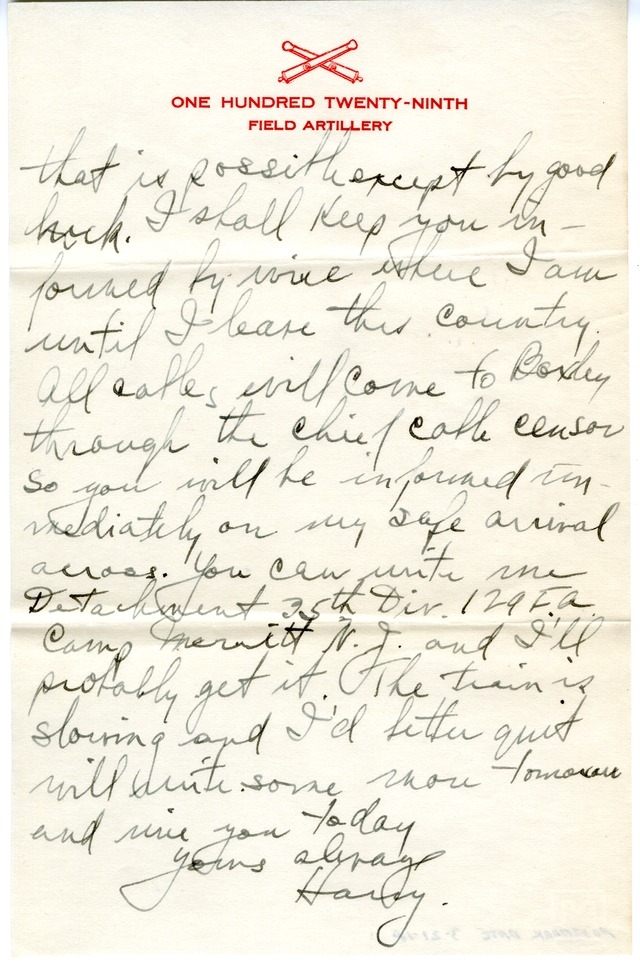 ONE HUNDRED TWENTY-NINTH
FIELD ARTILLERY
that is possible except by good
luck. I shall keep you in-
formed by wire where I am
until I leave this country.
All cables will come to Boxley
through the chief cable censor
so you will be informed im-
mediately on my safe arrival
across. You can write me
Detachment 35th Div. 129 F.A.
Camp Merritt N.J. and I'll
probably get it. The train is
slowing and I'd better quit
will write some more tomorrow
and wire you today
Yours always
Harry.
POSTMARK DATE 3-21-18